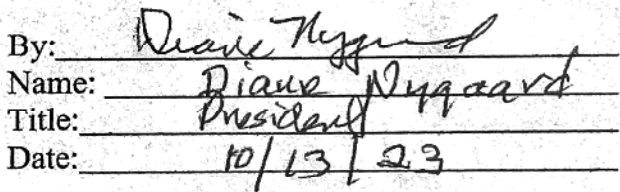 By: Diane Nygaard
Name: Diane Nygaard
Title: President
Date: 10/13/23